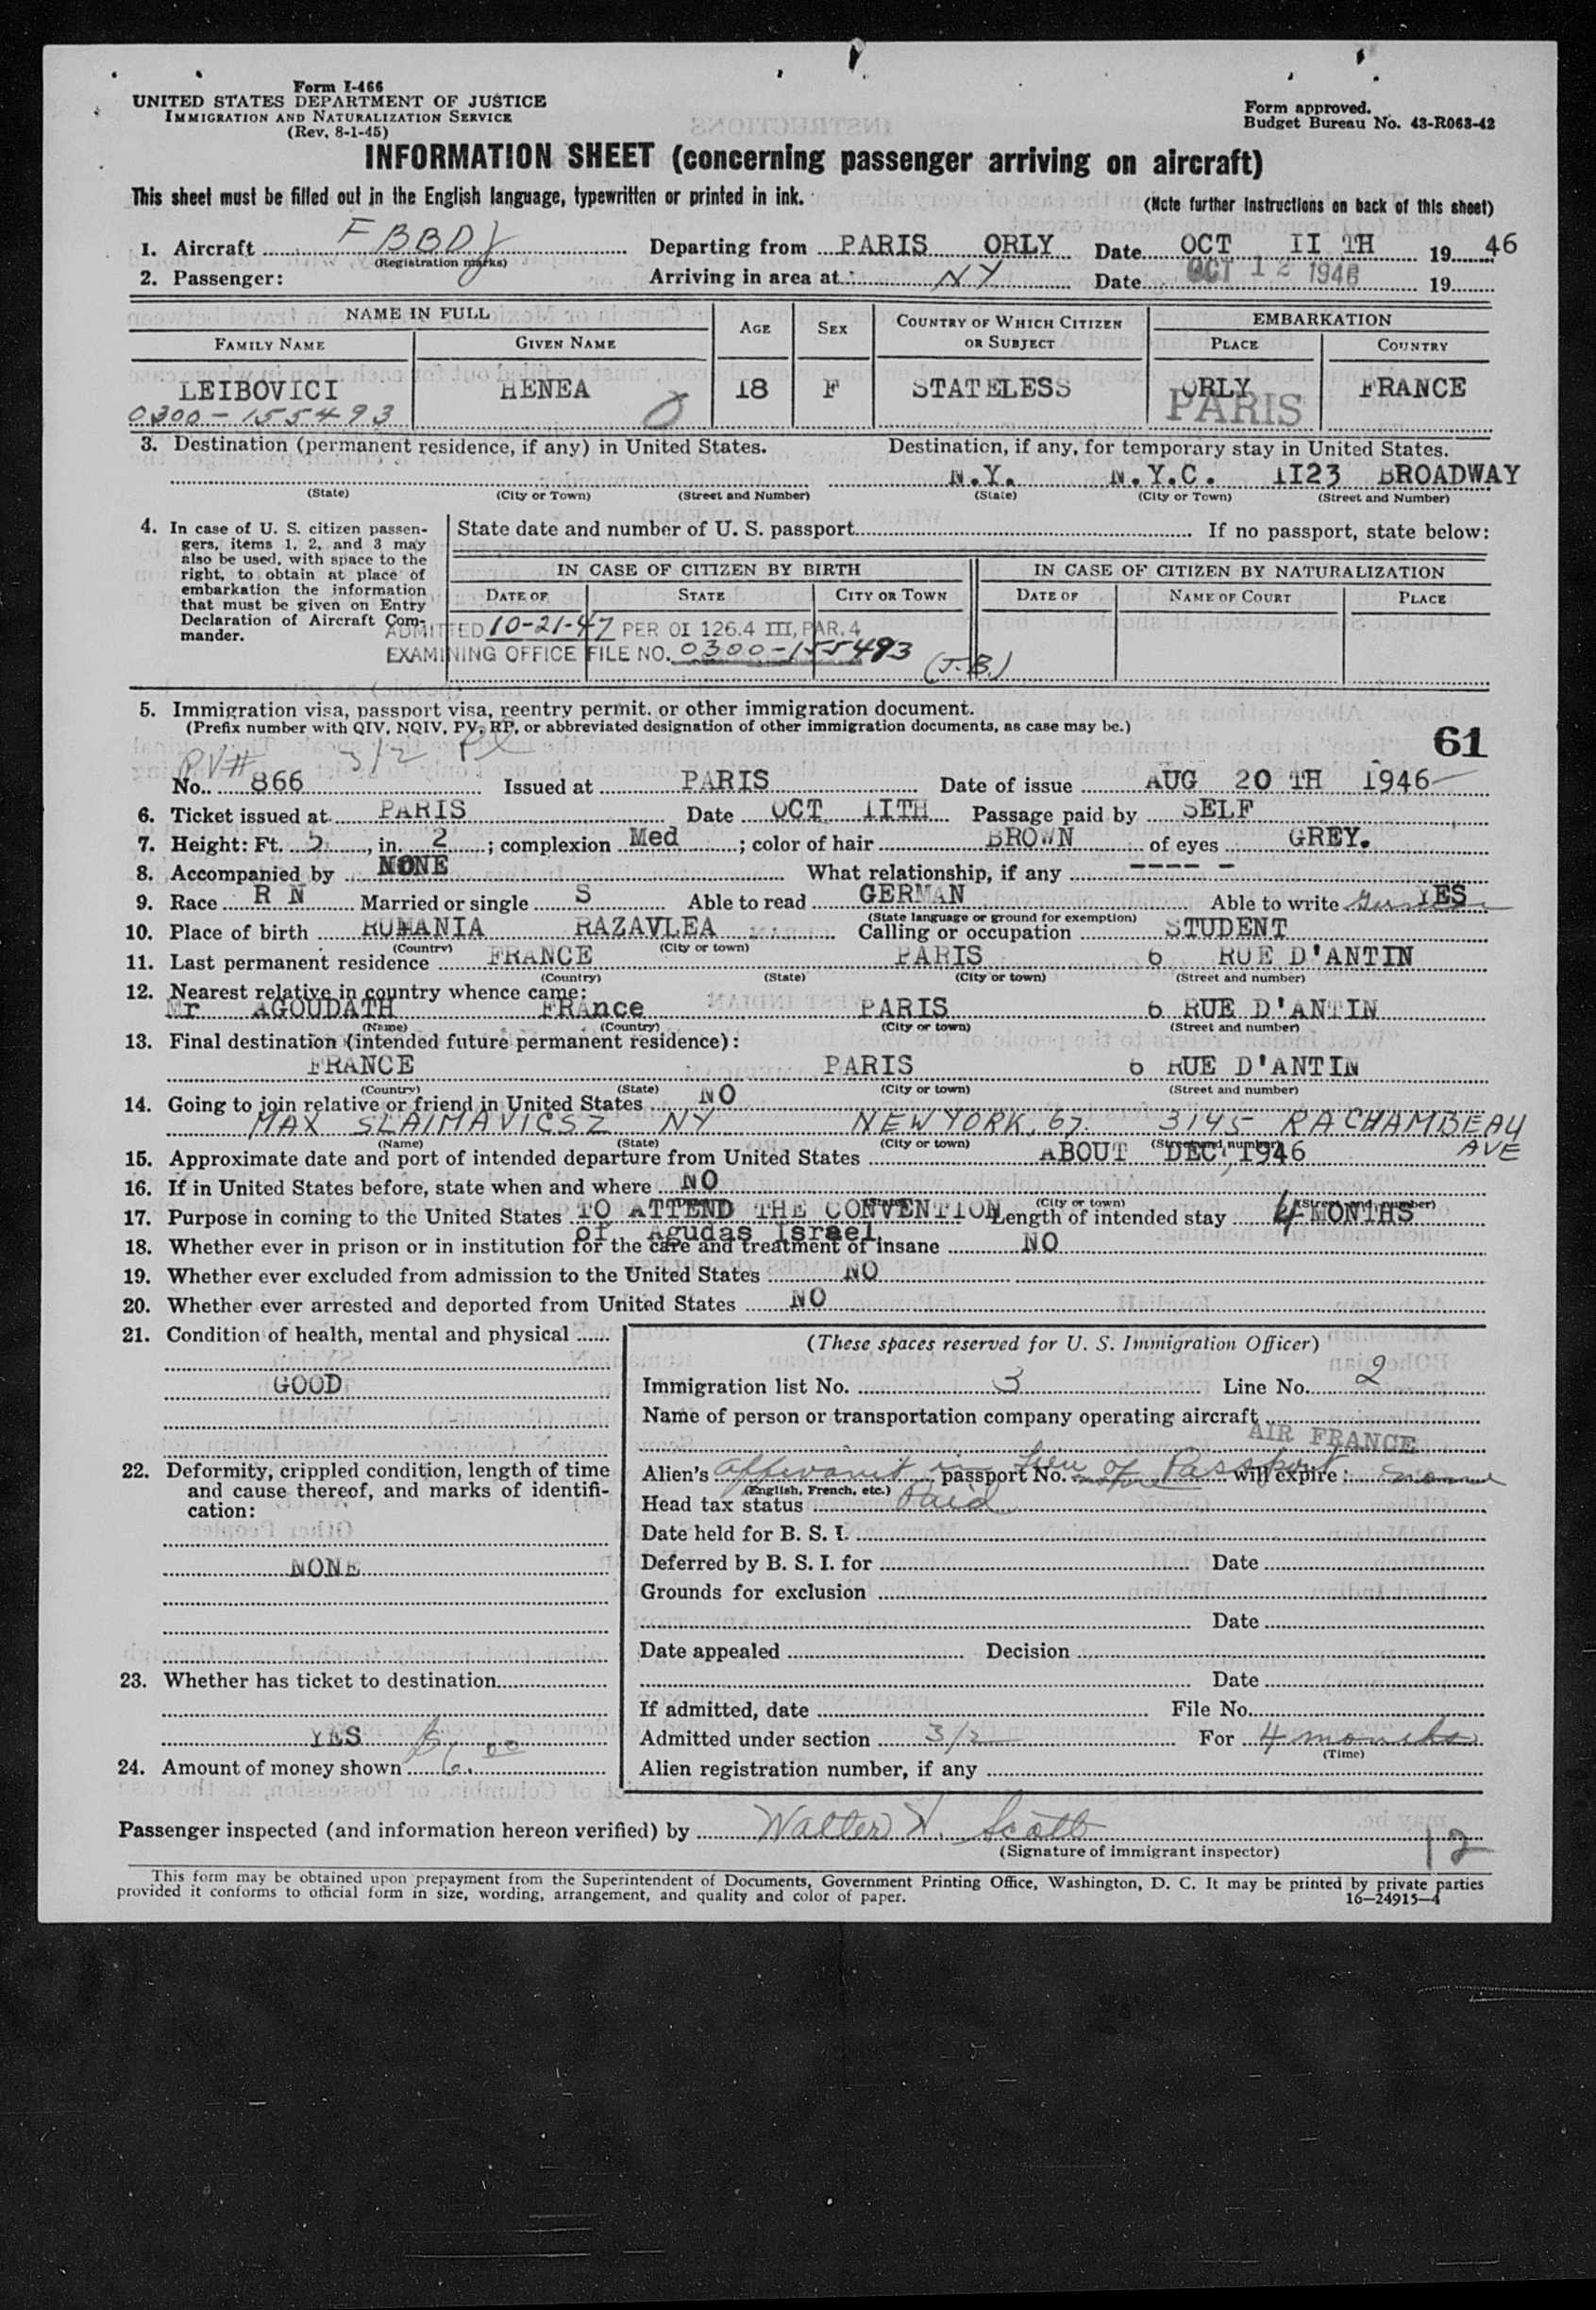 Form I-466
UNITED STATES DEPARTMENT OF JUSTICE
IMMIGRATION AND NATURALIZATION SERVICE
(Rev. 8-1-45)
Form approved.
Budget Bureau No. 43-R063-42
INFORMATION SHEET (concerning passenger arriving on aircraft)
This sheet must be filled out in the English language, typewritten or printed in ink.
(Note further instructions on back of this sheet)
1. Aircraft F BBDJ Departing from PARIS ORLY Date OCT II TH 1946
(Registration marks)
2. Passenger: Arriving in area at NY Date OCT 12 1946 19
NAME IN FULL AGE SEX COUNTRY OF WHICH CITIZEN OR SUBJECT EMBARKATION
FAMILY NAME GIVEN NAME PLACE COUNTRY
LEIBOVICI RENEA 18 F STATELESS ORLY FRANCE
0300-155493 PARIS
3. Destination (permanent residence, if any) in United States. Destination, if any, for temporary stay in United States.
N.Y. N.Y.C. 1I23 BROADWAY
(State) (City or Town) (Street and Number) (State) (City or Town) (Street and Number)
4. In case of U. S. citizen passengers, items 1, 2, and 3 may also be used, with space to the right, to obtain at place of embarkation the information that must be given on Entry Declaration of Aircraft Commander.
State date and number of U. S. passport If no passport, state below:
IN CASE OF CITIZEN BY BIRTH IN CASE OF CITIZEN BY NATURALIZATION
DATE OF STATE CITY OR TOWN DATE OF NAME OF COURT PLACE
ADMITTED 10-21-47 PER OI 126.4 III, PAR. 4
EXAMINING OFFICE FILE NO. 0300-155493 (J.B.)
5. Immigration visa, passport visa, reentry permit, or other immigration document.
(Prefix number with QIV, NQIV, PV, RP, or abbreviated designation of other immigration documents, as case may be.)
61
PV# 3/2
No. 866 Issued at PARIS Date of issue AUG 20 TH 1946
6. Ticket issued at PARIS Date OCT IITH Passage paid by SELF
7. Height: Ft. 5, in. 2; complexion Med; color of hair BROWN of eyes GREY.
8. Accompanied by NONE What relationship, if any ---- -
9. Race R N Married or single S Able to read GERMAN Able to write German YES
(State language or ground for exemption)
10. Place of birth RUMANIA RAZAVLEA Calling or occupation STUDENT
(Country) (City or town)
11. Last permanent residence FRANCE PARIS 6 RUE D'ANTIN
(Country) (State) (City or town) (Street and number)
12. Nearest relative in country whence came:
Mr AGOUDATH FRAnce PARIS 6 RUE D'ANTIN
(Name) (Country) (City or town) (Street and number)
13. Final destination (intended future permanent residence):
FRANCE PARIS 6 RUE D'ANTIN
(Country) (State) (City or town) (Street and number)
14. Going to join relative or friend in United States NO
MAX SLAIMAVICSZ NY NEW YORK, 67. 3145 RACHAMBEAU AVE
(Name) (State) (City or town) (Street and number)
15. Approximate date and port of intended departure from United States ABOUT DEC, 1946
16. If in United States before, state when and where NO
(City or town) (Street and number)
17. Purpose in coming to the United States TO ATTEND THE CONVENTION Length of intended stay 4 MONTHS
of Agudas Israel
18. Whether ever in prison or in institution for the care and treatment of insane NO
19. Whether ever excluded from admission to the United States NO
20. Whether ever arrested and deported from United States NO
21. Condition of health, mental and physical
GOOD
22. Deformity, crippled condition, length of time and cause thereof, and marks of identification:
NONE
23. Whether has ticket to destination
YES
24. Amount of money shown $6.00
(These spaces reserved for U. S. Immigration Officer)
Immigration list No. 3 Line No. 2
Name of person or transportation company operating aircraft
AIR FRANCE
Alien's Affidavit in lieu of Passport passport No. will expire: none
(English, French, etc.)
Head tax status Paid
Date held for B. S. I.
Deferred by B. S. I. for Date
Grounds for exclusion
Date
Date appealed Decision
Date
If admitted, date File No.
Admitted under section 3/2 For 4 months
(Time)
Alien registration number, if any
Passenger inspected (and information hereon verified) by Walter H. Scott
(Signature of immigrant inspector)
12
This form may be obtained upon prepayment from the Superintendent of Documents, Government Printing Office, Washington, D. C. It may be printed by private parties
provided it conforms to official form in size, wording, arrangement, and quality and color of paper. 16—24915-4